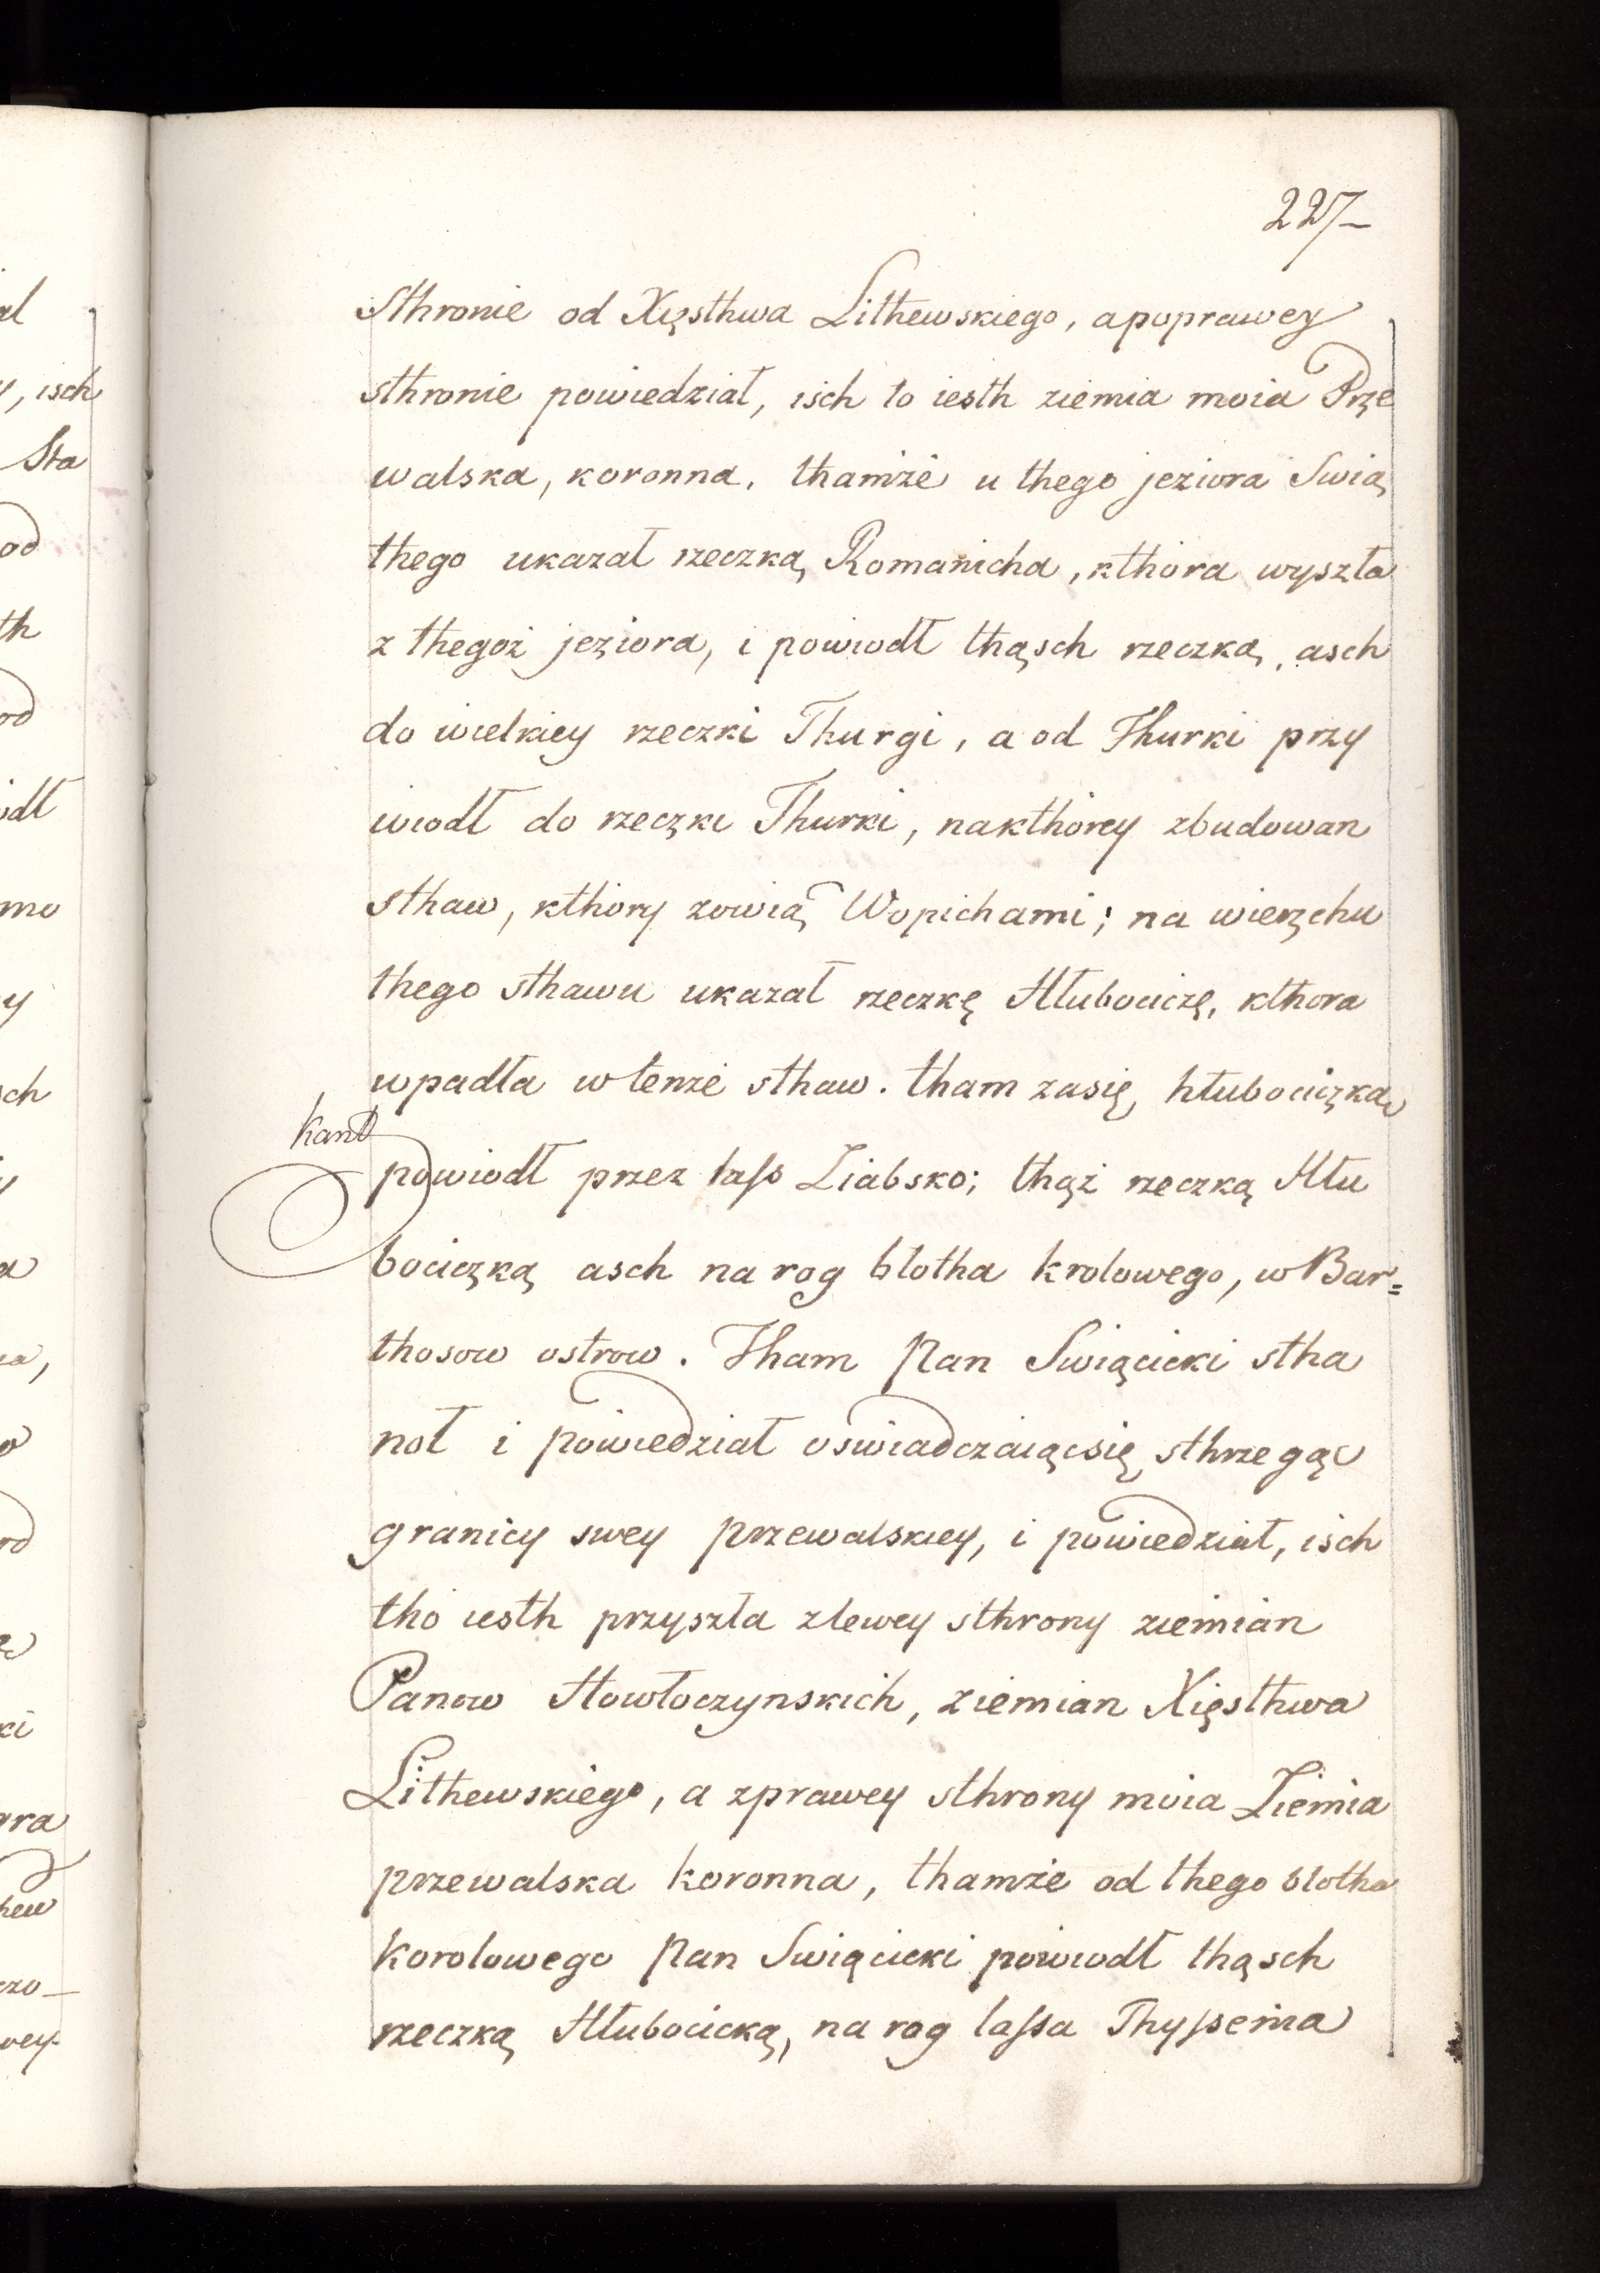 227
sthronie od Xięsthwa Lithewskiego, apoprawey
sthronie powiedział, isch to iesth ziemia moia Prze
walska, koronna, thamże u thego jeziora Swią
thego ukazał rzeczką Romanicha, kthora wyszła
z thegoż jeziora, i powiodł thąsch rzeczką, asch
do wielkiey rzeczki Thurgi, a od Thurki przy
wiodł do rzeczki Thurki, nakthorey zbudowan
sthaw, kthory zowią Wopichami; na wierzchu
thego sthawu ukazał rzeczkę Hłubociczę, kthora
wpadła w tenże sthaw. tham zasię hłubociczką
kant
powiodł przez lasso Ziabsko; thąż rzeczką Hłu
bociczką asch na rog błotha krolowego, w Bar=
thosow ostrow. Tham Pan Swiącicki stha
noł i powiedział oswiadczaiącsię sthrzegąc
granicy swey przewalskiey, i powiedział, isch
tho iesth przyszła zlewey sthrony ziemian
Panow Howłoczynskich, ziemian Xięsthwa
Lithewskiego, a zprawey sthrony moia Ziemia
przewalska koronna, thamże od thego błotha
korolowego Pan Swiącicki powiodł thąsch
rzeczką Hłubocicką, na rog lassa Thyssenia